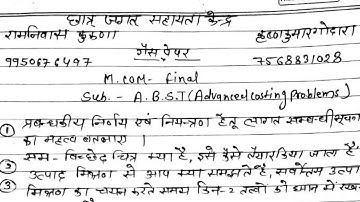 छात्र जगत सहायता केन्द्र
रामनिवास कुकणा कृष्णकुमार गोदारा
गैस पेपर
9950676497 7568831028
M.COM- final
Sub. - A.B.S.T (Advanced costing Problems)
① प्रबन्धकीय निर्णय एवं नियन्त्रण हेतु लागत सम्बन्धी सूचना
का महत्व बतलाइए ।
② सम-विच्छेद चित्र क्या है, इसे कैसे तैयार किया जाता है-
③ उत्पाद मिश्रण से आप क्या समझते हैं, सर्वोत्तम उत्पा
मिश्रण का चयन करते समय किन-2 तत्वों को ध्यान में रखा